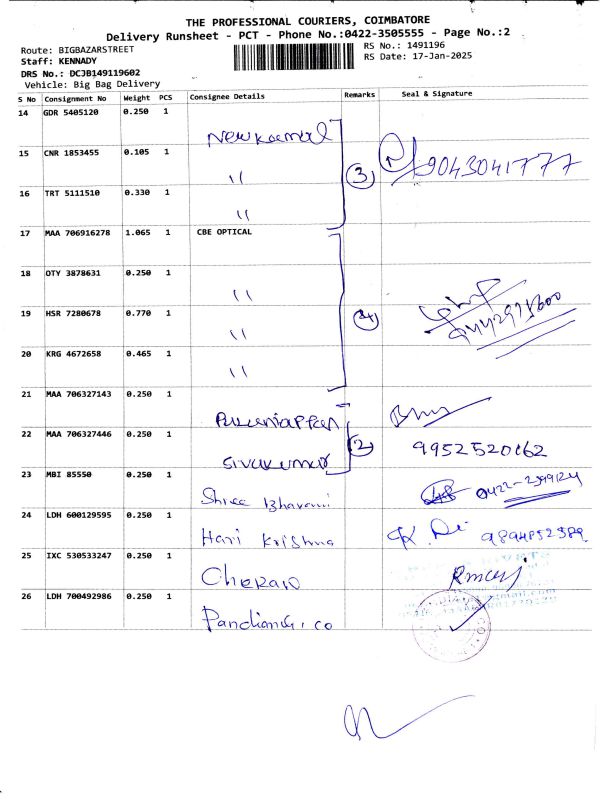 THE PROFESSIONAL COURIERS, COIMBATORE
Delivery Runsheet - PCT - Phone No.:0422-3505555 - Page No.:2
Route: BIGBAZARSTREET
RS No.: 1491196
Staff: KENNADY
RS Date: 17-Jan-2025
DRS No.: DCJB149119602
Vehicle: Big Bag Delivery
S No Consignment No Weight PCS Consignee Details Remarks Seal & Signature
14 GDR 5405120 0.250 1
15 CNR 1853455 0.105 1 " 3 9043041777
16 TRT 5111510 0.330 1 "
17 MAA 706916278 1.065 1 CBE OPTICAL
18 OTY 3878631 0.250 1 "
19 HSR 7280678 0.770 1 " 4
20 KRG 4672658 0.465 1 "
21 MAA 706327143 0.250 1
22 MAA 706327446 0.250 1 Sivakumar 2 9952520162
23 MBI 85550 0.250 1 Shree Bhavani
24 LDH 600129595 0.250 1 Hari Krishna
25 IXC 530533247 0.250 1 Cheran
26 LDH 700492986 0.250 1